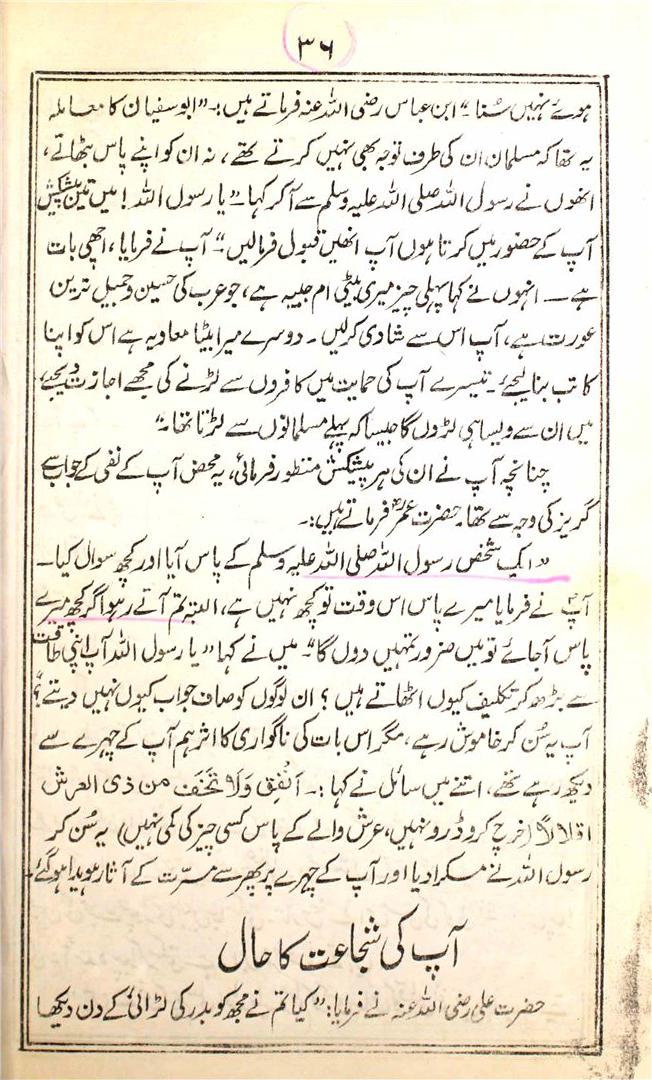 ۳۶
ہوئے نہیں سُنا۔" ابن عباس رضی اللہ عنہ فرماتے ہیں:۔ "ابوسفیان کا معاملہ
یہ تھا کہ مسلمان ان کی طرف توجہ بھی نہیں کرتے تھے، نہ ان کو اپنے پاس بٹھاتے،
انھوں نے رسول اللہ صلی اللہ علیہ وسلم سے آکر کہا۔ "یا رسول اللہ! میں تین پیشکش
آپ کے حضور میں کرتا ہوں آپ انھیں قبول فرمالیں"۔ آپ نے فرمایا، اچھی بات
ہے ۔ انہوں نے کہا پہلی چیز میری بیٹی ام حبیبہ ہے، جو عرب کی حسین و جمیل ترین
عورت ہے، آپ اس سے شادی کرلیں۔ دوسرے میرا بیٹا معاویہ ہے اس کو اپنا
کاتب بنا لیجئے۔ تیسرے آپ کی حمایت میں کافروں سے لڑنے کی مجھے اجازت دیجیے،
میں ان سے ویسا ہی لڑوں گا جیسا کہ پہلے مسلمانوں سے لڑتا تھا۔"
چنانچہ آپ نے ان کی ہر پیشکش منظور فرمائی، یہ محض آپ کے نفی کے جواب سے
گریز کی وجہ سے تھا۔ حضرت عمرؓ فرماتے ہیں:۔
"ایک شخص رسول اللہ صلی اللہ علیہ وسلم کے پاس آیا اور کچھ سوال کیا۔
آپؐ نے فرمایا میرے پاس اس وقت تو کچھ نہیں ہے، البتہ تم آتے رہو اگر کچھ میرے
پاس آجائے تو میں ضرور تمہیں دوں گا"۔ میں نے کہا "یا رسول اللہ آپ اپنی طاقت
سے بڑھ کر تکلیف کیوں اٹھاتے ہیں؟ ان لوگوں کو صاف جواب کیوں نہیں دیتے؟"
آپ یہ سُن کر خاموش رہے، مگر اس بات کی ناگواری کا اثر ہم آپ کے چہرے سے
دیکھ رہے تھے، اتنے میں سائل نے کہا:۔ اَنْفِقْ وَلَا تَخَفْ من ذی العرش
اقلالا (خرچ کرو ڈرو نہیں، عرش والے کے پاس کسی چیز کی کمی نہیں) یہ سُن کر
رسول اللہ نے مسکرا دیا اور آپ کے چہرے پر پھر سے مسرّت کے آثار ہویدا ہوگئے۔
آپ کی شجاعت کا حال
حضرت علی رضی اللہ عنہ نے فرمایا: "کیا تم نے مجھ کو بدر کی لڑائی کے دن دیکھا